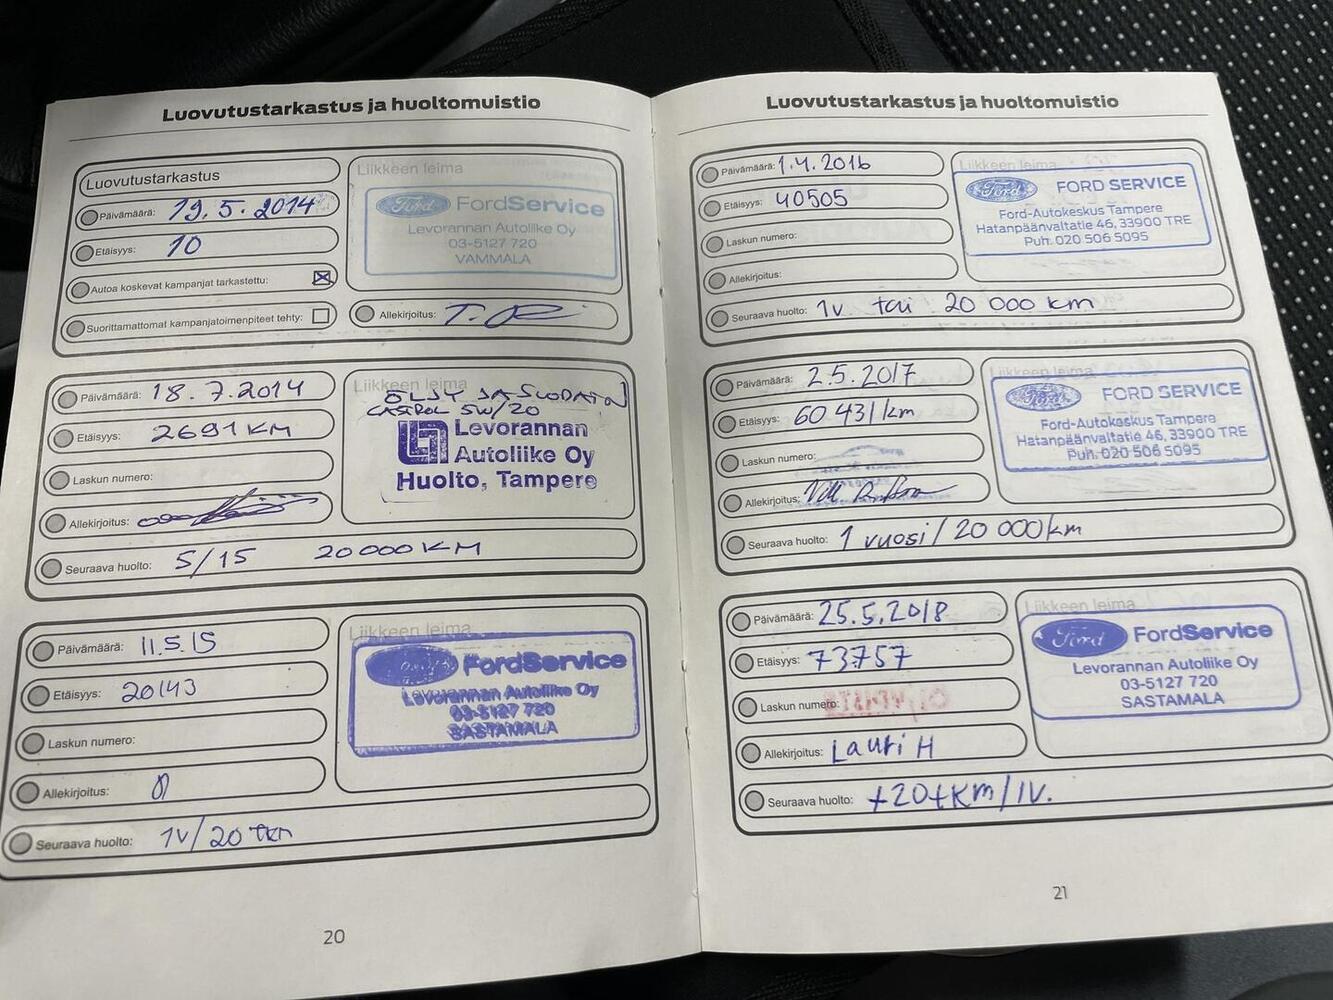 Luovutustarkastus ja huoltomuistio
Luovutustarkastus
Päivämäärä: 19.5.2014
Etäisyys: 10
Autoa koskevat kampanjat tarkastettu:
Suorittamattomat kampanjatoimenpiteet tehty:
Liikkeen leima
Ford FordService
Levorannan Autoliike Oy
03-5127 720
VAMMALA
Allekirjoitus:
Päivämäärä: 18.7.2014
Etäisyys: 2691 KM
Laskun numero:
Allekirjoitus:
Seuraava huolto: 5/15 20000 KM
Liikkeen leima
ÖLJY JA SUODATIN
CASTROL 5W/20
Levorannan
Autoliike Oy
Huolto, Tampere
Päivämäärä: 11.5.15
Etäisyys: 20143
Laskun numero:
Allekirjoitus:
Seuraava huolto: 1v/20 tkm
Liikkeen leima
Ford FordService
Levorannan Autoliike Oy
03-5127 720
SASTAMALA
20
Luovutustarkastus ja huoltomuistio
Päivämäärä: 1.4.2016
Etäisyys: 40505
Laskun numero:
Allekirjoitus:
Seuraava huolto: 1v tai 20 000 km
Liikkeen leima
Ford FORD SERVICE
Ford-Autokeskus Tampere
Hatanpäänvaltatie 46, 33900 TRE
Puh. 020 506 5095
Päivämäärä: 2.5.2017
Etäisyys: 60431 km
Laskun numero:
Allekirjoitus:
Seuraava huolto: 1 vuosi/20 000 km
Ford FORD SERVICE
Ford-Autokeskus Tampere
Hatanpäänvaltatie 46, 33900 TRE
Puh. 020 506 5095
Päivämäärä: 25.5.2018
Etäisyys: 73757
Laskun numero:
Allekirjoitus: Lauri H
Seuraava huolto: +20tkm/1v.
Liikkeen leima
Ford FordService
Levorannan Autoliike Oy
03-5127 720
SASTAMALA
21